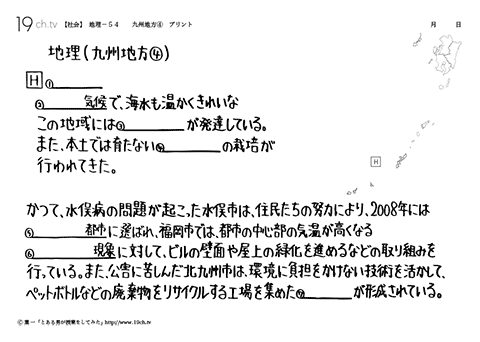 19ch.tv 【社会】 地理－５４ 九州地方④ プリント 月 日
地理(九州地方④)
H ①
② 気候で、海水も温かくきれいな
この地域には③ が発達している。
また、本土では育たない④ の栽培が
行われてきた。
H
かつて、水俣病の問題が起こった水俣市は、住民たちの努力により、2008年には
⑤ 都市に選ばれ、福岡市では、都市の中心部の気温が高くなる
⑥ 現象に対して、ビルの壁面や屋上の緑化を進めるなどの取り組みを
行っている。また、公害に苦しんだ北九州市は、環境に負担をかけない技術を活かして、
ペットボトルなどの廃棄物をリサイクルする工場を集めた⑦ が形成されている。
Ⓒ 葉一「とある男が授業をしてみた」http://www.19ch.tv